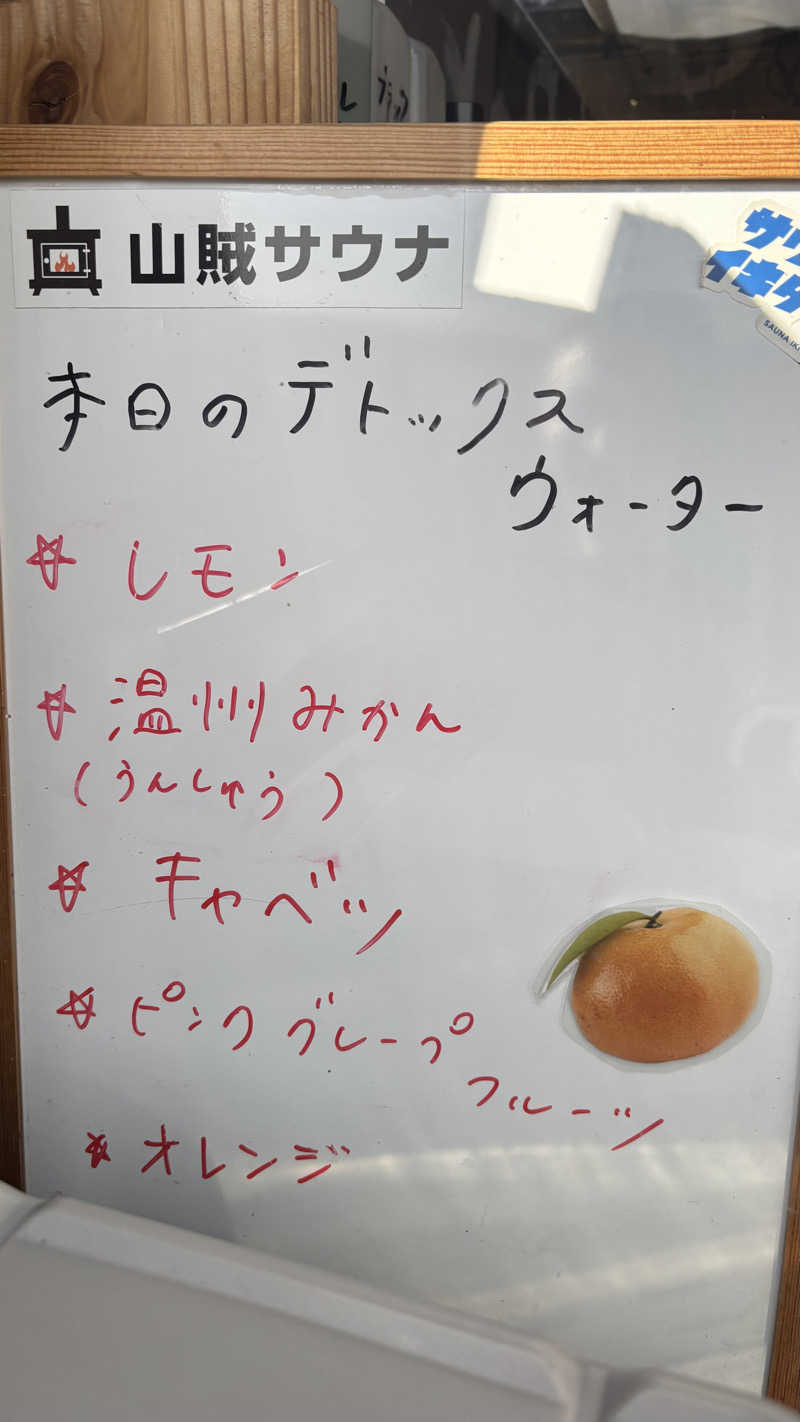 ブラック
山賊サウナ
サウナ
イキタイ
SAUNA IKI
本日のデトックス
ウォーター
☆ レモン
☆ 温州みかん
(うんしゅう)
☆ キャベツ
☆ ピンクグレープ
フルーツ
☆ オレンジ